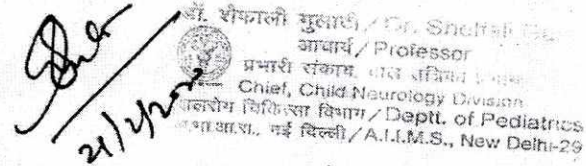 डॉ. शेफाली गुलाटी / Dr. Sheffali
आचार्य / Professor
प्रभारी संकाय,
Chief, Child Neurology Division
चिकित्सा विभाग / Deptt. of Pediatrics
नई दिल्ली / A.I.I.M.S., New Delhi-29